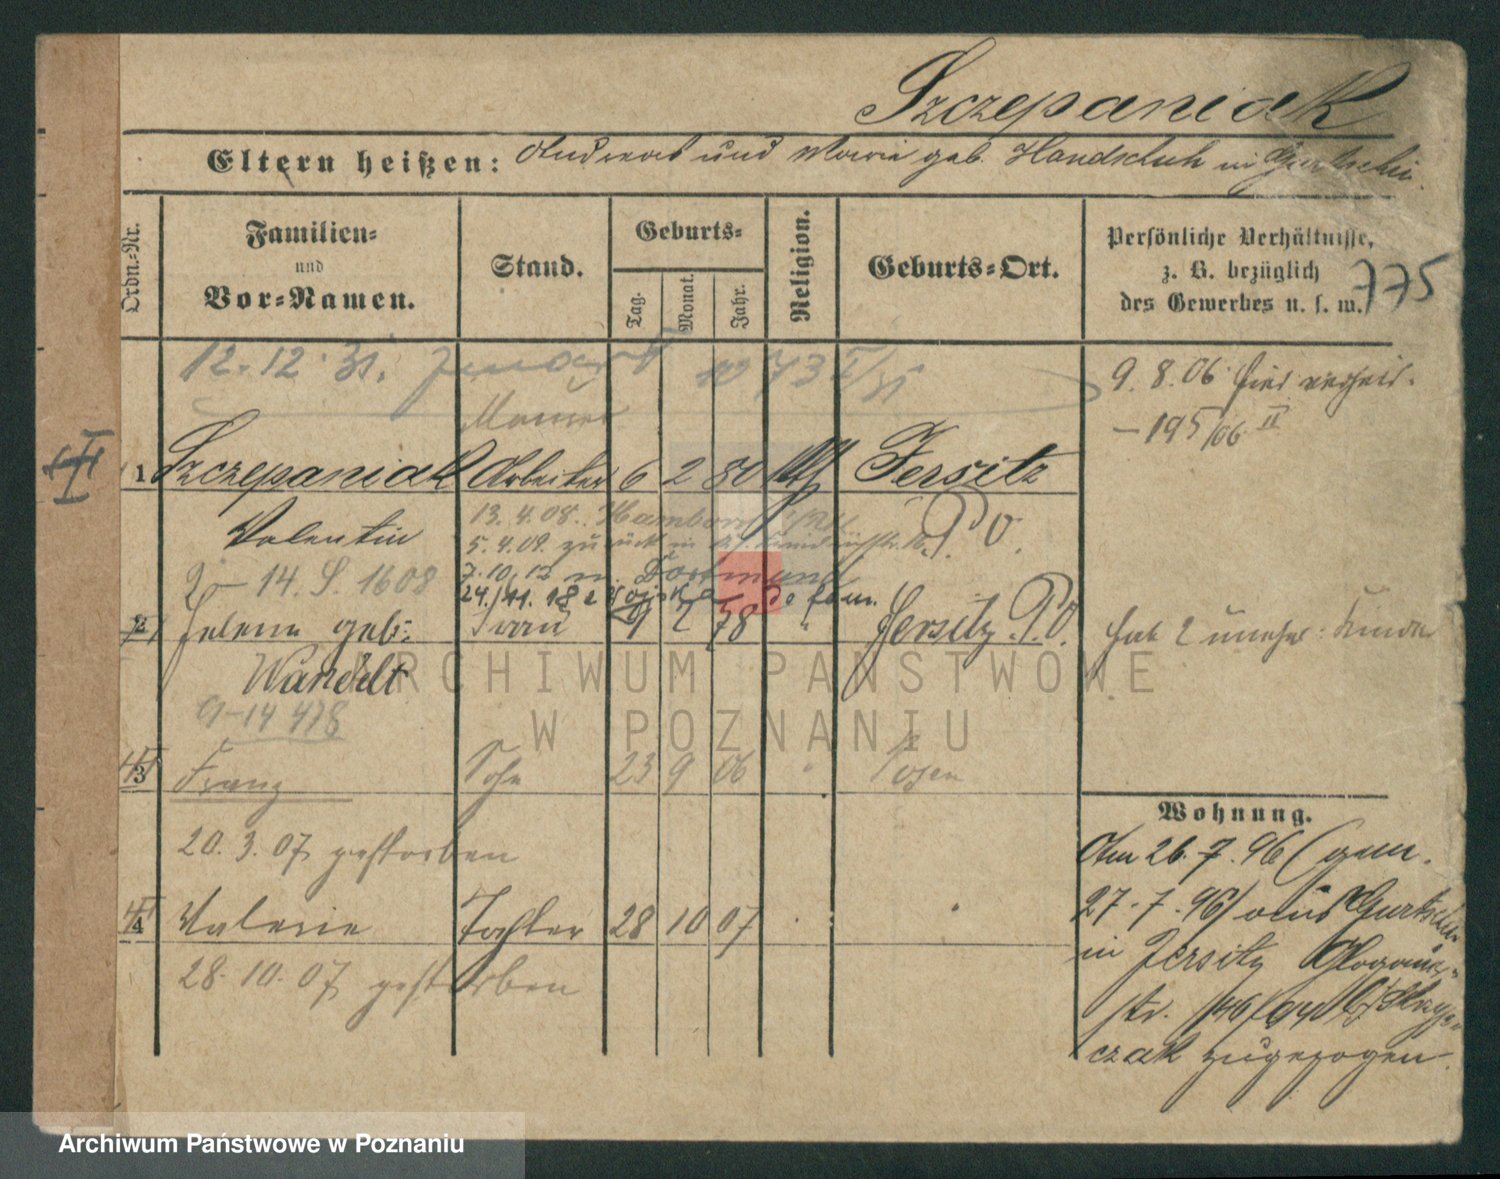 Szczepaniak
Eltern heißen: Andreas und Marie geb. Handschuh in Gurtschin.
Ordn.-Nr.
Familien-
und
Vor-Namen.
Stand.
Geburts-
Tag.
Monat.
Jahr.
Religion.
Geburts-Ort.
Persönliche Verhältnisse,
z. B. bezüglich
des Gewerbes u. s. w.
775
12. 12. 31.
9. 8. 06 hier verheir.
Maurer
– 195/06 II
1 Szczepaniak Arbeiter 6 2 80 Jersitz
Valentin
13. 4. 08. Hamborn
P O.
5. 4. 09. zurück in
14. S. 1608
7. 10. 12 n. Dortmund
24. 11. 18 z Wojska
2 Helene geb. Frau 9 2 78 " Jersitz P.O. hat 2 unehel. Kinder
Wandelt
9–14 478
3 Franz Sohn 23 9 06 " Posen
Wohnung.
20. 3. 07 gestorben
Am 26. 7. 96 (gem.
4 Valerie Tochter 28 10 07
27. 7. 96) aus Gurtschin
in Jersitz Glogauer-
28. 10. 07 gestorben
str.
czak zugezogen.
ARCHIWUM PAŃSTWOWE
W POZNANIU
Archiwum Państwowe w Poznaniu